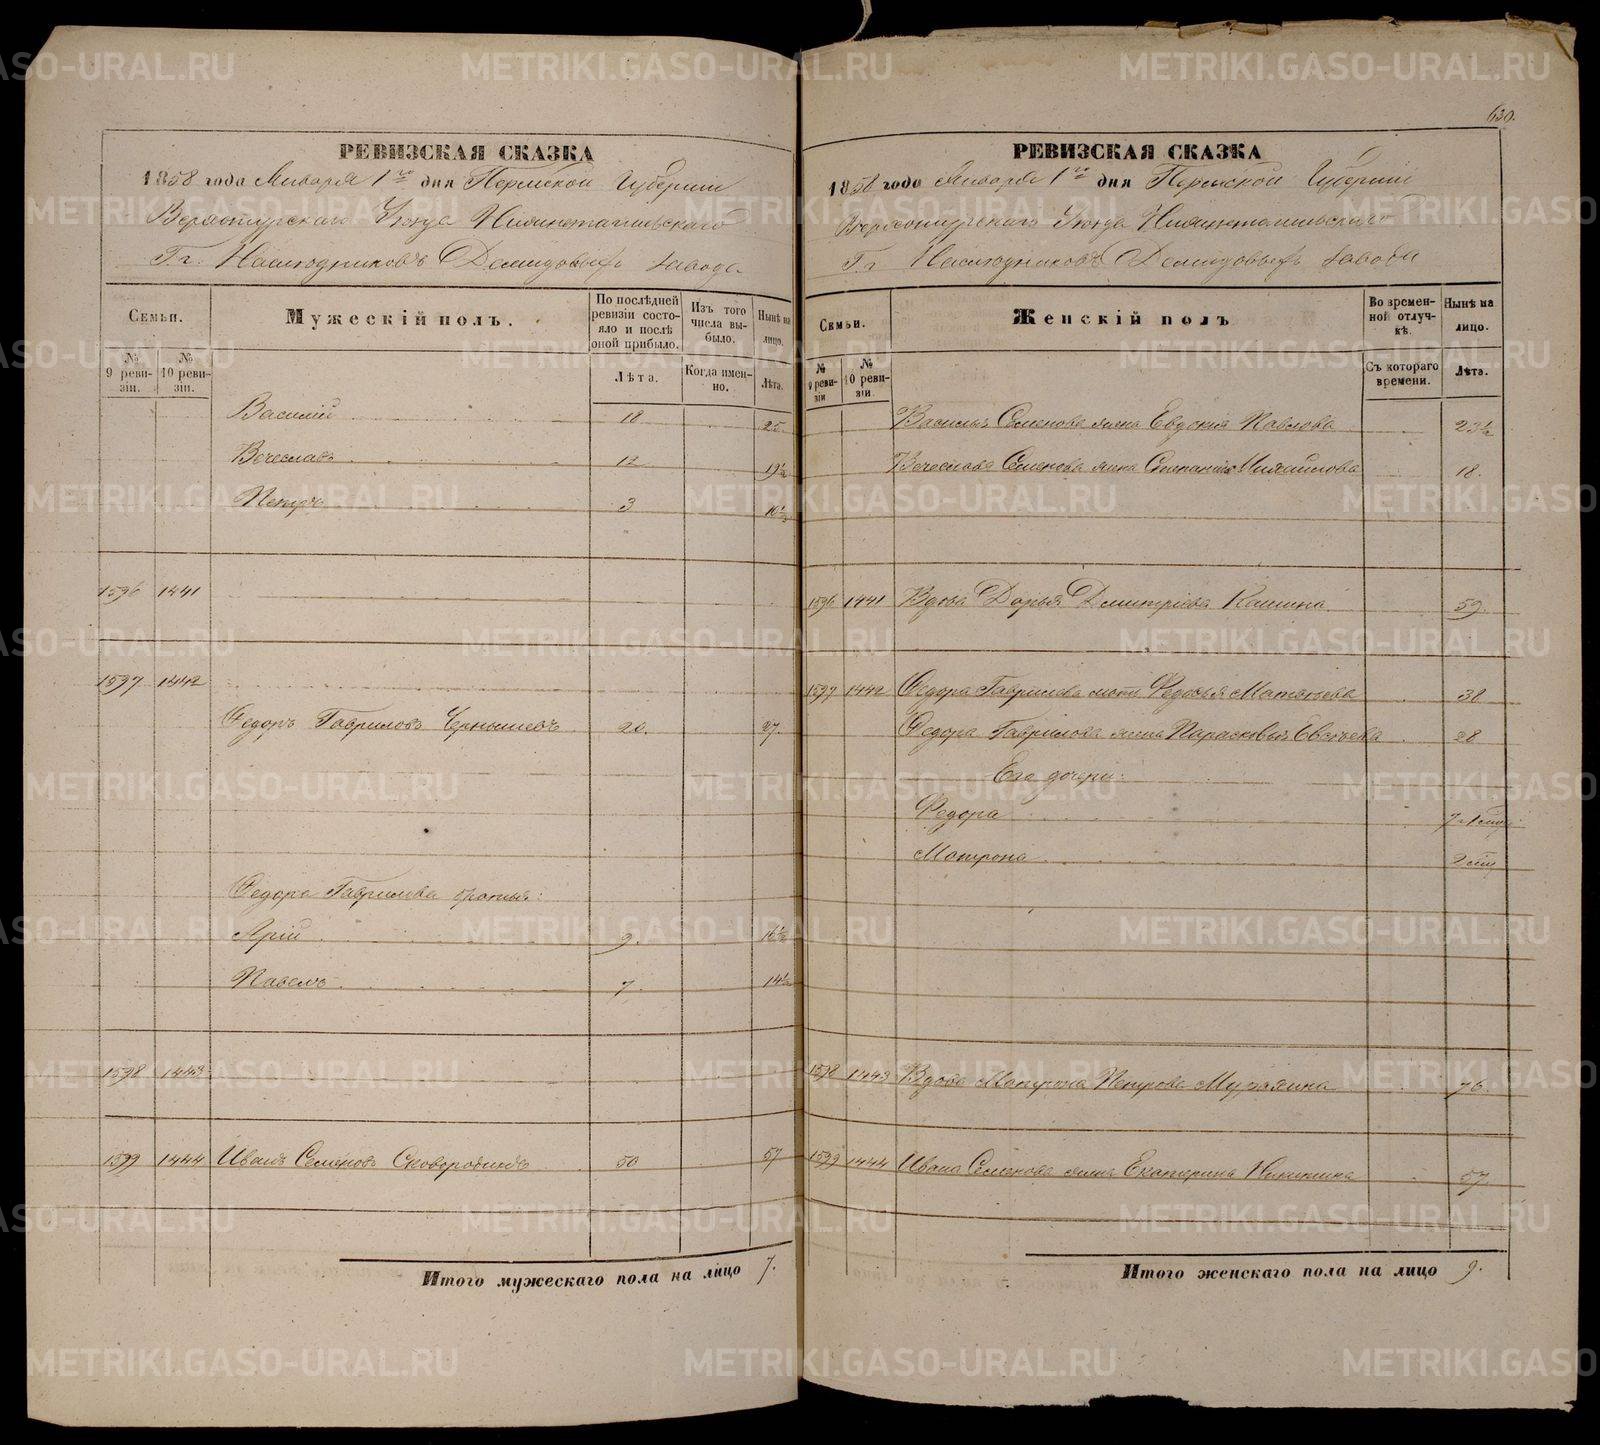 630.
РЕВИЗСКАЯ СКАЗКА
1858 года Января 1го дня Пермской Губерніи
Верхотурскаго Уѣзда Нижнетагильскаго
Г.г. Наслѣдниковъ Демидовыхъ завода
Семьи.
Мужескій полъ.
По послѣдней ревизіи состояло и послѣ оной прибыло.
Изъ того числа выбыло.
Нынѣ на лицо.
№ 9 ревизіи.
№ 10 ревизіи.
Лѣта.
Когда именно.
Лѣта.
Василій 18 25
Вечеславъ 12 19½
Петръ 3 10½
1596 1441
1597 1442
Федоръ Гавриловъ Чернышевъ 20. 27.
Федора Гаврилова братья:
Арій 9. 16½
Павелъ 7 14½
1598 1443
1599 1444 Иванъ Семеновъ Сковородинъ 50 57
Итого мужескаго пола на лицо 7.
РЕВИЗСКАЯ СКАЗКА
1858 года Января 1го дня Пермской Губерніи
Верхотурскаго Уѣзда Нижнетагильскаго
Г.г. Наслѣдниковъ Демидовыхъ завода
Семьи.
Женскій полъ
Во временной отлучкѣ.
Нынѣ на лицо.
№ 9 ревизіи
№ 10 ревизіи.
Съ котораго времени.
Лѣта.
Василья Семенова жена Евдокия Павлова 23½
Вечеслава Семенова жена Степанида Михайлова 18.
1596 1441 Вдова Дарья Дмитріева Кашина 59.
1597 1442 Федора Гаврилова мать Федосья Матвѣева 38
Федора Гаврилова жена Парасковья Евсѣева 28
Его дочери:
Федора
Матрона
1598 1443 Вдова Матрона Петрова 76.
1599 1444 Ивана Семенова жена Екатерина Никитина 57
Итого женскаго пола на лицо 9.
METRIKI.GASO-URAL.RU